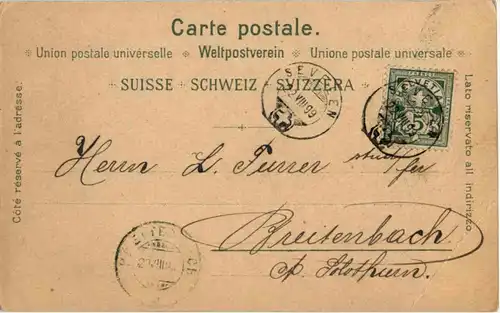 Carte postale.
Union postale universelle Weltpostverein Unione postale universale
SUISSE SCHWEIZ SVIZZERA
Côté réservé à l'adresse.
Lato riservato all indirizzo
SEVELEN
VIII 99
HELVETIA
5
Herrn L. Furrer
Breitenbach
Solothurn.
BREITENBACH
VIII